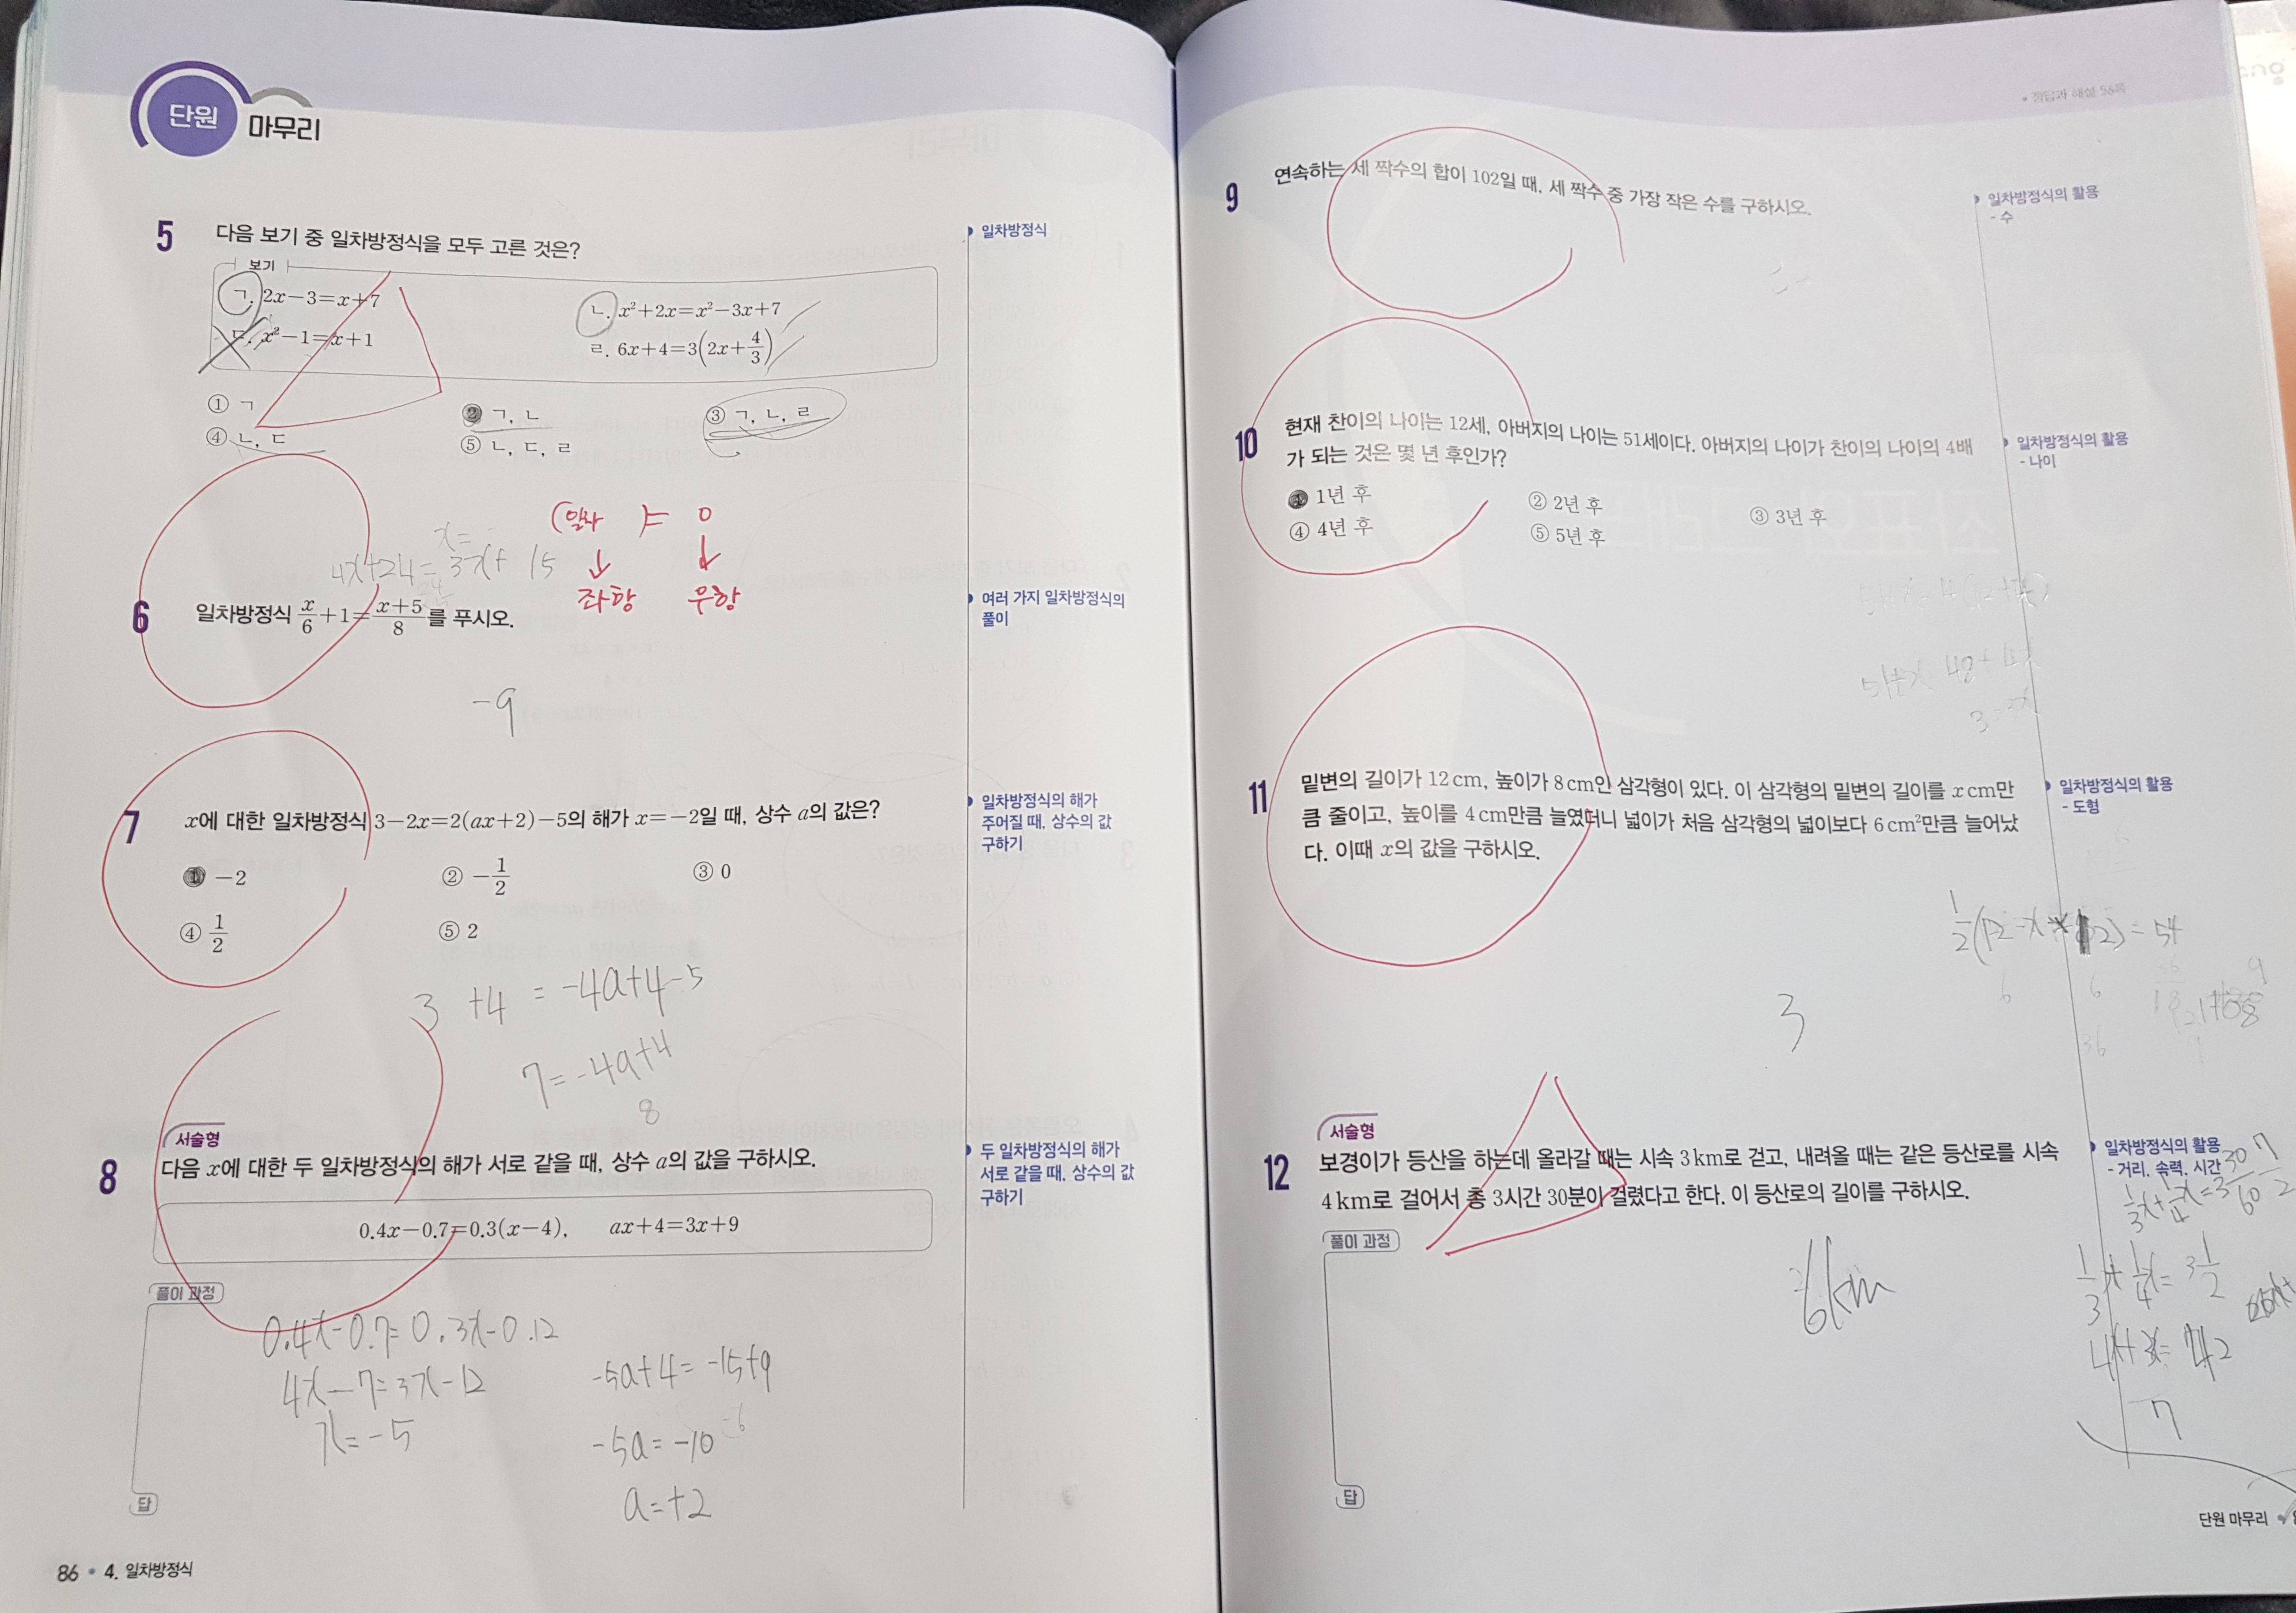 단원 마무리
5 다음 보기 중 일차방정식을 모두 고른 것은?
일차방정식
보기
ㄱ. 2x-3=x+7
ㄴ. x²+2x=x²-3x+7
ㄷ. x²-1=x+1
ㄹ. 6x+4=3(2x+4/3)
① ㄱ
② ㄱ, ㄴ
③ ㄱ, ㄴ, ㄹ
④ ㄴ, ㄷ
⑤ ㄴ, ㄷ, ㄹ
(일차 )= 0
좌항 우항
x=
4x+24=3x+15
6 일차방정식 x/6+1=(x+5)/8를 푸시오.
여러 가지 일차방정식의
풀이
-9
7 x에 대한 일차방정식 3-2x=2(ax+2)-5의 해가 x=-2일 때, 상수 a의 값은?
일차방정식의 해가
주어질 때, 상수의 값
구하기
① -2
② -1/2
③ 0
④ 1/2
⑤ 2
3 +4 = -4a+4-5
7=-4a+4
8
서술형
8 다음 x에 대한 두 일차방정식의 해가 서로 같을 때, 상수 a의 값을 구하시오.
두 일차방정식의 해가
서로 같을 때, 상수의 값
구하기
0.4x-0.7=0.3(x-4), ax+4=3x+9
풀이 과정
0.4x-0.7=0.3x-0.12
4x-7=3x-12
x=-5
-5a+4=-15+9
-5a=-10
a=+2
답
86 • 4. 일차방정식
• 정답과 해설 56쪽
9 연속하는 세 짝수의 합이 102일 때, 세 짝수 중 가장 작은 수를 구하시오.
일차방정식의 활용
- 수
10 현재 찬이의 나이는 12세, 아버지의 나이는 51세이다. 아버지의 나이가 찬이의 나이의 4배
가 되는 것은 몇 년 후인가?
일차방정식의 활용
- 나이
① 1년 후
② 2년 후
③ 3년 후
④ 4년 후
⑤ 5년 후
3=3x
11 밑변의 길이가 12 cm, 높이가 8 cm인 삼각형이 있다. 이 삼각형의 밑변의 길이를 x cm만
큼 줄이고, 높이를 4 cm만큼 늘였더니 넓이가 처음 삼각형의 넓이보다 6 cm²만큼 늘어났
다. 이때 x의 값을 구하시오.
일차방정식의 활용
- 도형
3
서술형
12 보경이가 등산을 하는데 올라갈 때는 시속 3 km로 걷고, 내려올 때는 같은 등산로를 시속
4 km로 걸어서 총 3시간 30분이 걸렸다고 한다. 이 등산로의 길이를 구하시오.
일차방정식의 활용
- 거리, 속력, 시간
풀이 과정
6km
7
답
단원 마무리